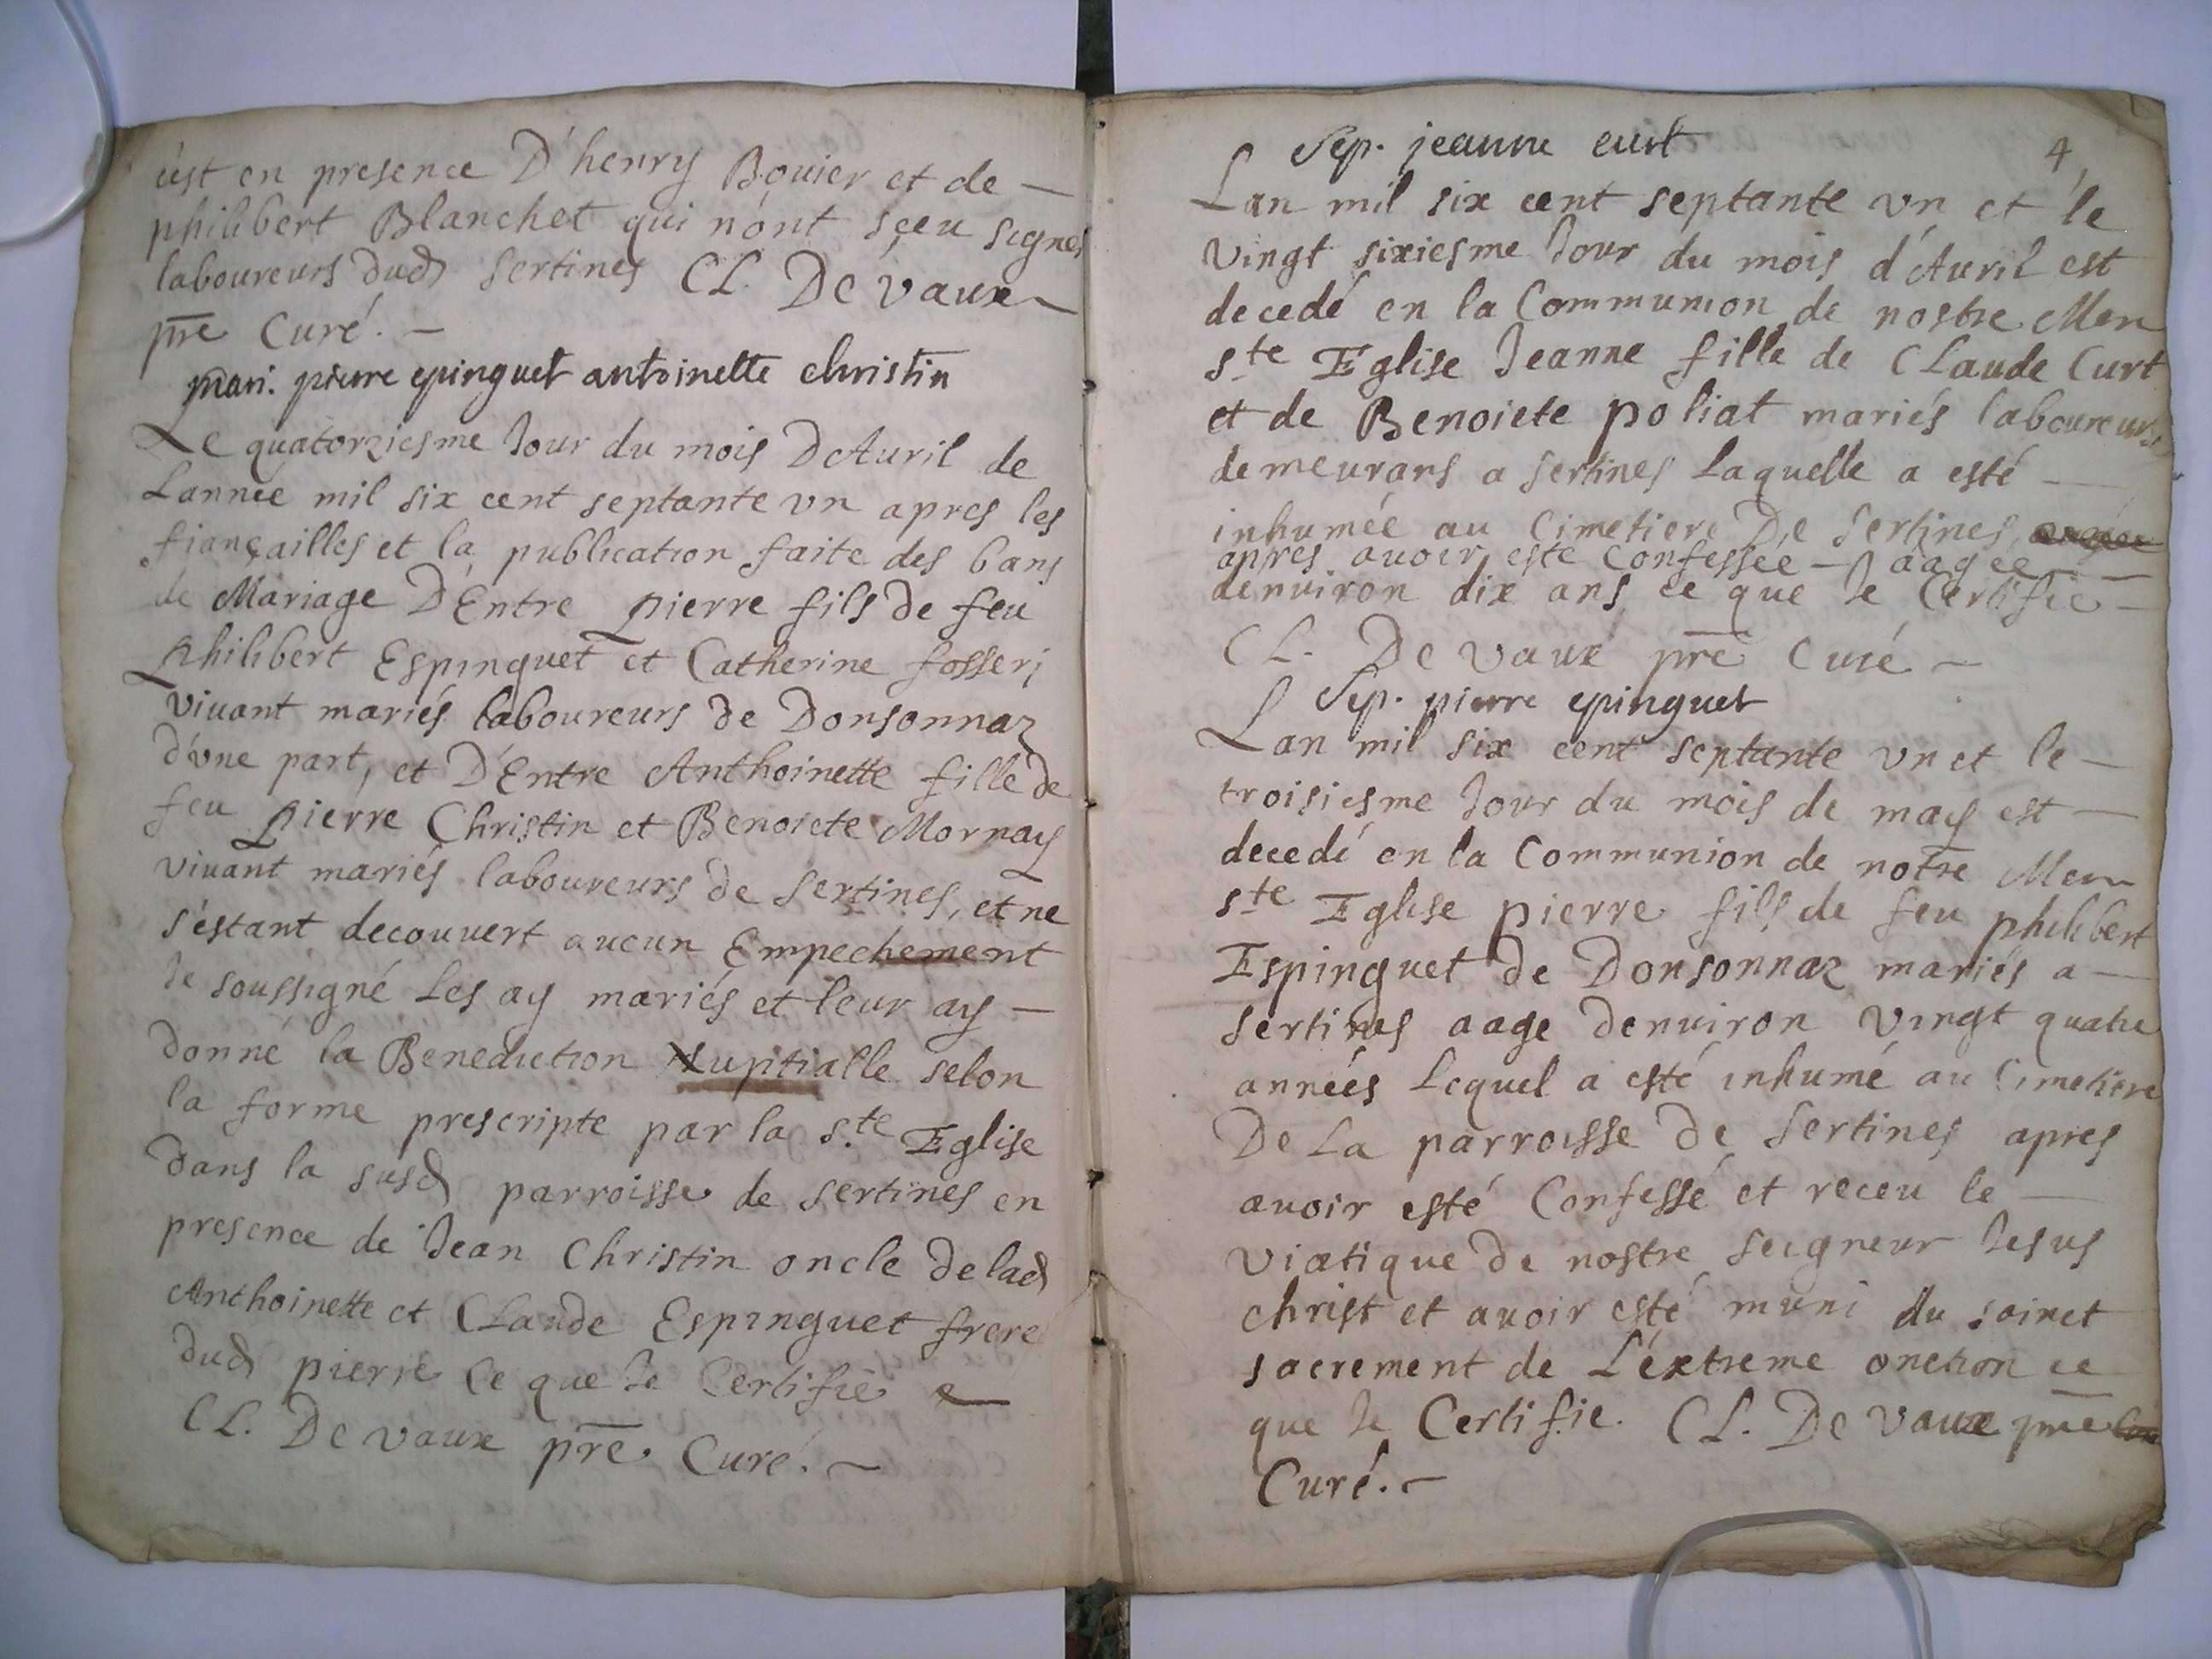 c'est en presence D'henry Bouier et de —
philibert Blanchet qui n'ont sçeu signer
laboureurs dud Sertines CL. De vaux
pre Curé. —
mari. pierre epinguet antoinette christin
Le quatorziesme Jour du mois D'Auril de
Lannée mil six cent septante vn apres les
fiançailles et la publication faite des bans
de Mariage D'Entre pierre fils de feu
philibert Espinguet et Catherine fosseri
viuant mariés laboureurs de Donsonnaz
d'vne part, et D'Entre Anthoinette fille de
feu pierre Christin et Benoiete Mornay
viuant mariés laboureurs de Sertines, et ne
s'estant decouuert aucun Empechement
Je soussigné Les ay mariés et leur ay —
donné la Benediction Nuptialle selon
la forme prescripte par la s.te Eglise
dans la susd parroisse de Sertines en
presence de Jean Christin oncle de lad
Anthoinette et CLaude Espinguet frere
dud pierre Ce que Je Certifie
CL. De vaux pre Curé. —
Sep. jeanne curt
4
Lan mil six cent septante vn et le
vingt sixiesme Jour du mois d'Auril est
decedé en la Communion de nostre Mere
s.te Eglise Jeanne fille de CLaude Curt
et de Benoiete poliat mariés laboureurs
demeurans a Sertines Laquelle a esté —
inhumée au Cimetiere De Sertines
apres auoir esté Confessée — aagée —
denuiron dix ans ce que Je Certifie —
CL. De vaux pre Curé —
Sep. pierre epinguet
Lan mil six cent septante vn et le —
troisiesme Jour du mois de may est —
decedé en la Communion de notre Mere
s.te Eglise pierre fils de feu philibert
Espinguet de Donsonnaz mariés a —
Sertines aage denuiron vingt quatre
années Lequel a esté inhumé au Cimetiere
De La parroisse de Sertines apres
auoir esté Confessé et receu le —
viatique de nostre Seigneur Jesus
christ et auoir esté muni du sainct
sacrement de L'extreme onction ce
que Je Certifie. CL. De vaux pre
Curé. —